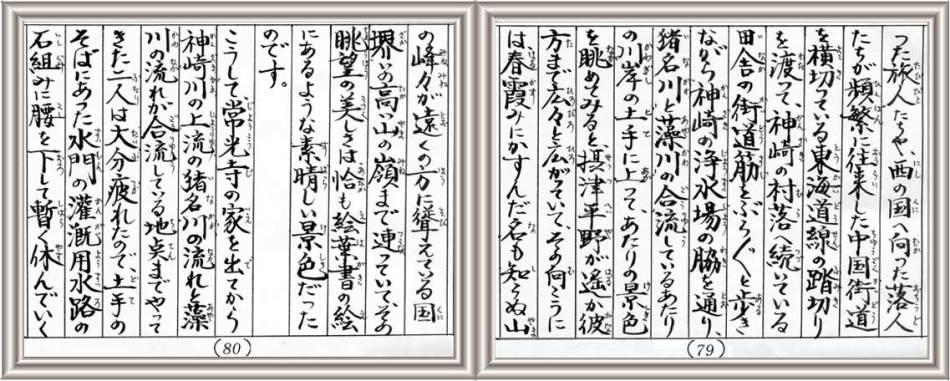 った旅人たちや、西の国へ向った落人
たちが頻繁に往来した中国街道
を横切っている東海道線の踏切り
を渡って、神崎の村落へ続いている
田舎の街道筋をぶら〱と歩き
ながら神崎の浄水場の脇を通り、
猪名川と藻川の合流しているあたり
の川岸の土手に上ってあたりの景色
を眺めてみると、摂津平野が遥か彼
方まで広々と広がっていて、その向こうに
は、春霞みにかすんだ名も知らぬ山
(79)
の峰々が遠くの方に聳えている国
境いの高い山の嶺まで連っていて、その
眺望の美しさは、恰も絵葉書の絵
にあるような素晴しい景色だった
のです。
こうして常光寺の家を出てから
神崎川の上流の猪名川の流れと藻
川の流れが合流している地点までやって
きた二人は大分疲れたので、土手の
そばにあった水門の灌漑用水路の
石組みに腰を下して暫く休んでいく
(80)